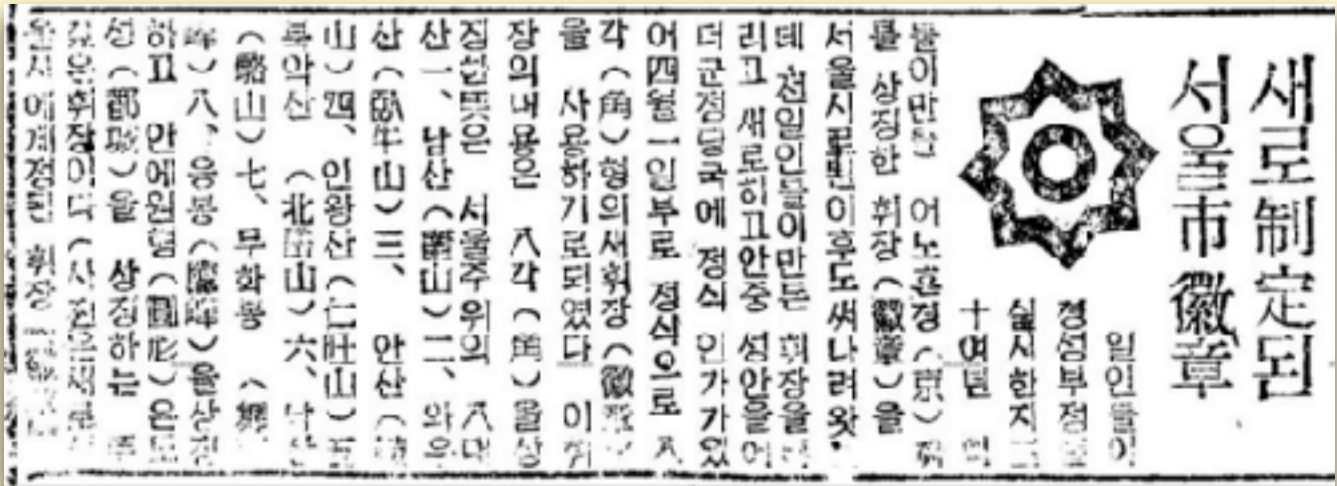 새로制定된
서울市徽章
일인들이
경성부정
실시한지
十여년
들이만든 (京)
를 상징한 휘장(徽章)을
서울시로된이후도써나려왓
데 전일인들이만든 휘장을
리고 새로히고안중 성안을어
더군정당국에 정식 인가가있
어四월一일부로 정식으로 八
각(角)형의새휘장(徽章)
을 사용하기로되였다 이휘
장의내용은 八각(角)을상
징한것은 서울주위의 八대
산一、남산(南山)二、와우
산(臥牛山)三、 안산(
山)四、인왕산(仁旺山)五
북악산 (北岳山)六、낙산
(駱山)七、무화봉 (
峰)八、응봉(鷹峰)을상징
하고 안에원형(圓形)은도
성(都城)을 상징하는
깊은휘장이다(사진은새로
제정된 휘장